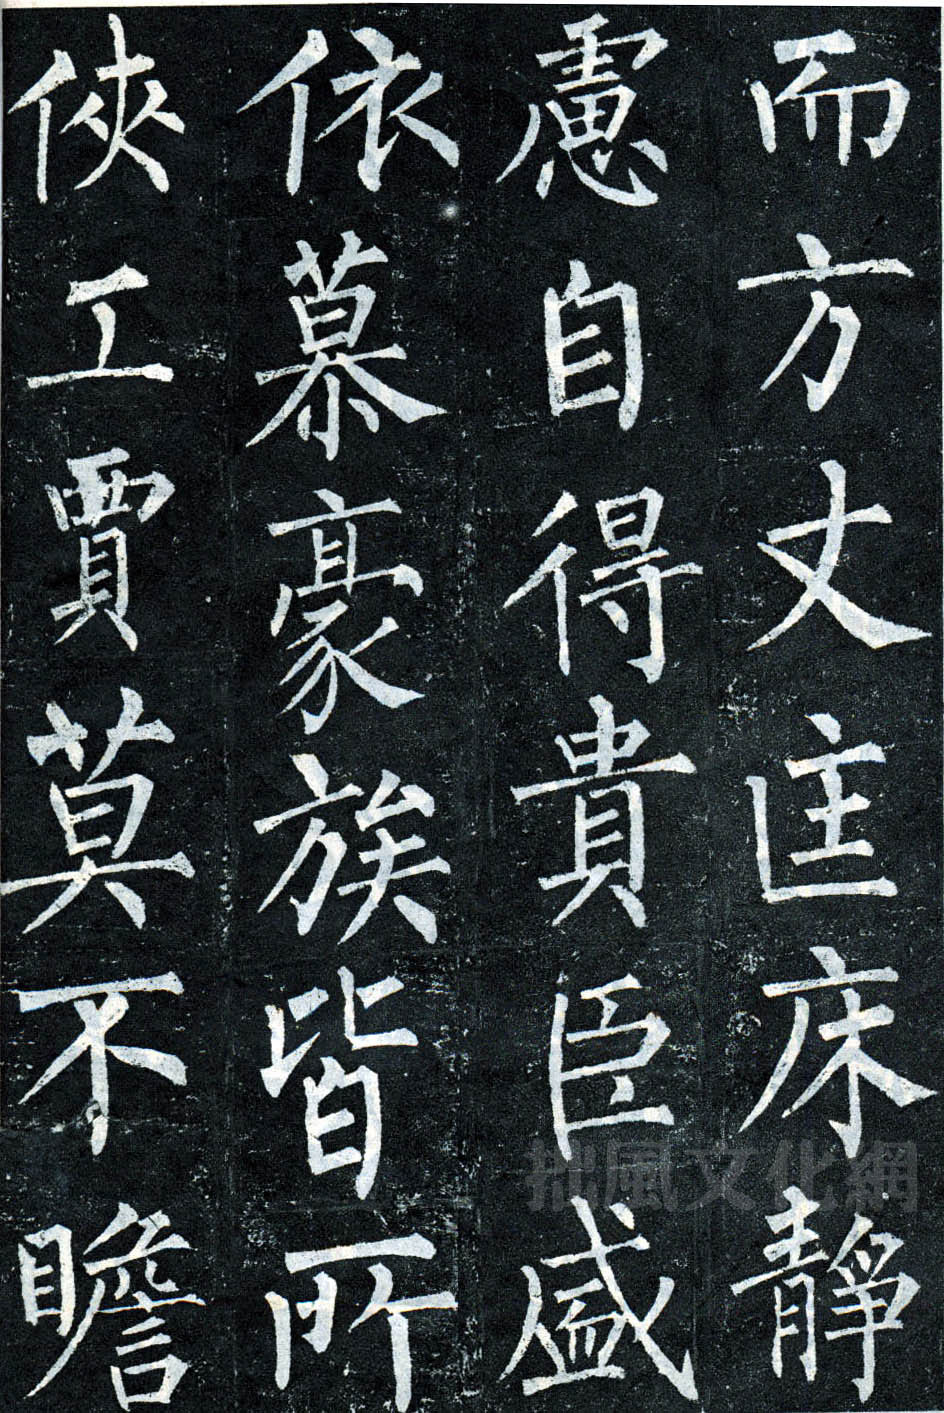 而方丈匡床静
慮自得貴臣盛
依慕豪族皆所
俠工賈莫不瞻
拙風文化網